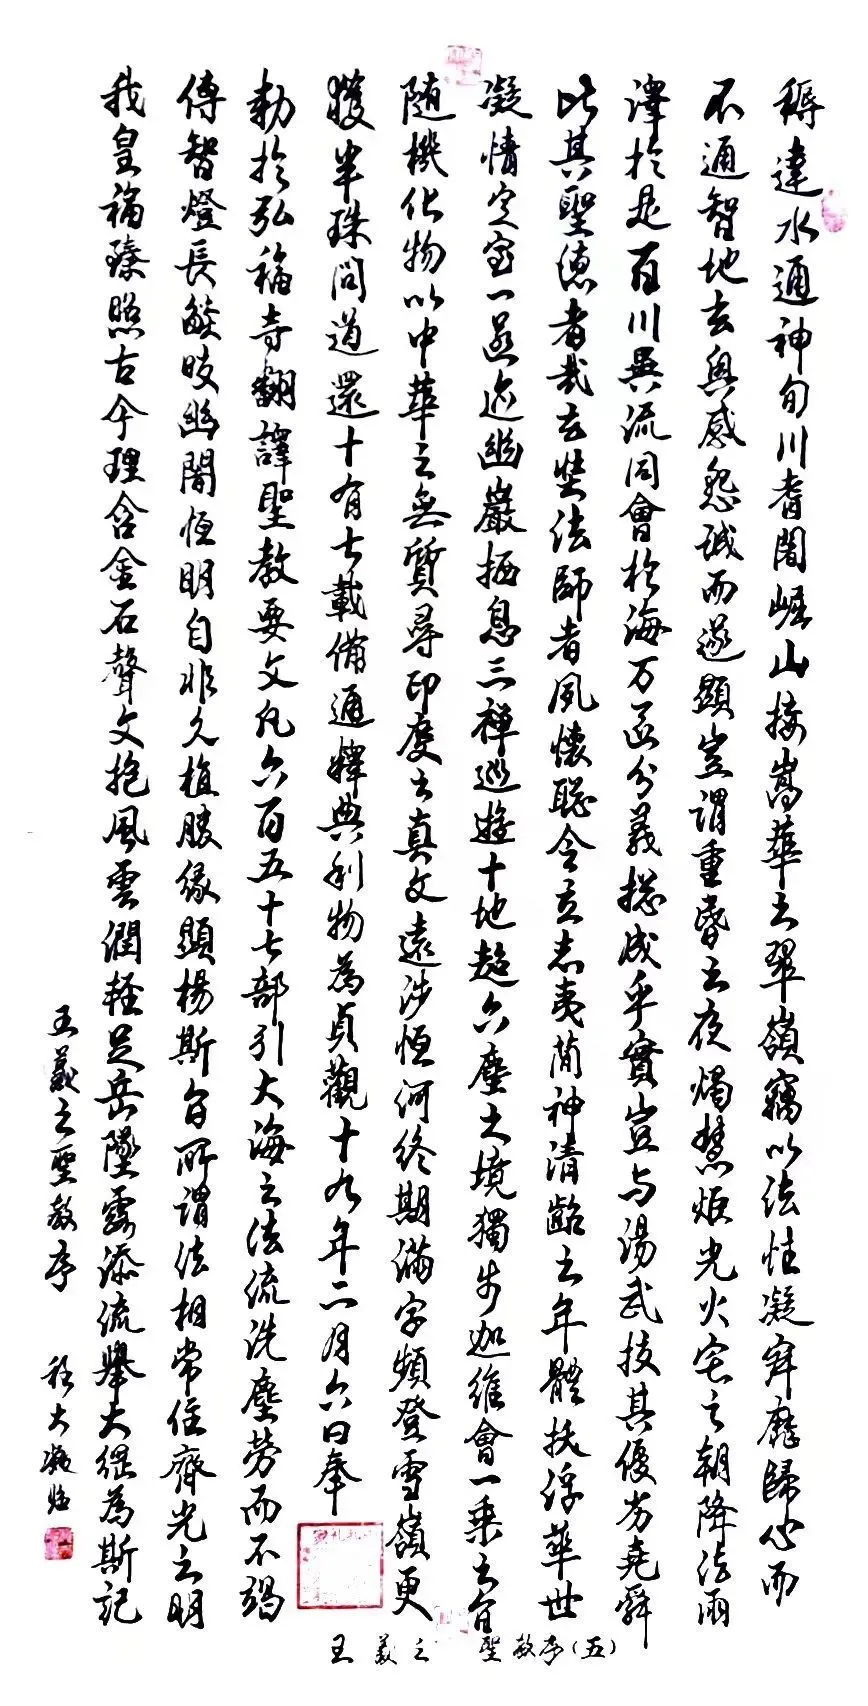 耨達水通神旬川耆闍崛山接嵩華之翠嶺竊以法性凝寂靡歸心而
不通智地玄奥感懇誠而遂顯豈謂重昏之夜燭慧炬光火宅之朝降法雨
澤於是百川異流同會於海万區分義揔成乎實豈与湯武技其優劣堯舜
比其聖德者哉玄奘法師者夙懷聡令立志夷簡神清齠之年體拔浮華世
凝情定室一匿迹幽巖栖息三禪巡遊十地超六塵之境獨步迦維會一乘之旨
随機化物以中華之無質尋印度之真文遠涉恒河終期滿字頻登雪嶺更
獲半珠問道還十有七載備通釋典利物為貞觀十九年二月六日奉
勅於弘福寺翻譯聖教要文凡六百五十七部引大海之法流洗塵勞而不竭
傳智燈長皎幽闇恒明自非久植勝緣顯揚斯旨所謂法相常住齊光之明
我皇福臻照古今理含金石聲文抱風雲潤輕足岳墜露添流舉大綱為斯記
王羲之聖教序 程大凝临
王羲之 聖教序(五)